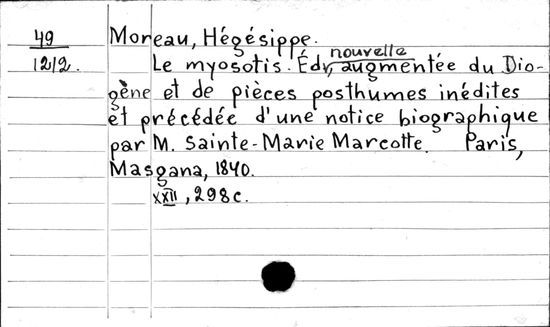 49
1212.
Moreau, Hégésippe.
Le myosotis. Éd. nouvelle, augmentée du Dio-
gène et de pièces posthumes inédites
et précédée d'une notice biographique
par M. Sainte-Marie Marcotte. Paris,
Masgana, 1840.
XXII, 298 c.